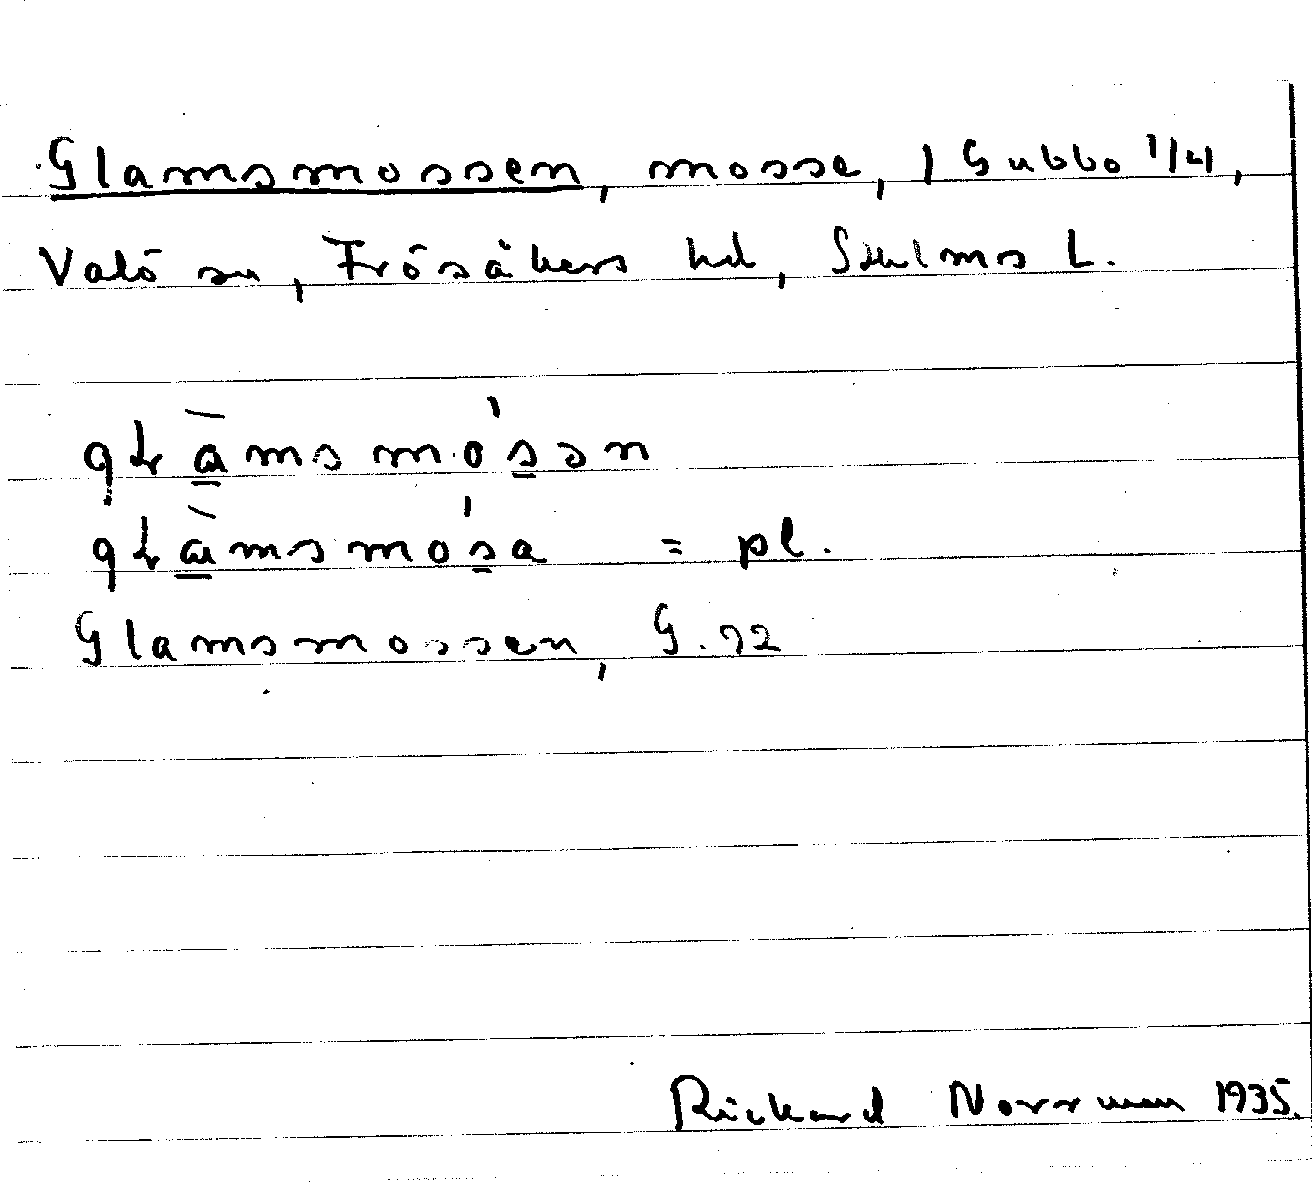 Glamsmossen, mosse, 1 Gubbo 1/4,
Valö sn, Frösåkers hd, Sthlms L.
gɫa̲̅msmós̲ən
gɫa̲̅msmós̲a = pl.
Glamsmossen, G.22
Rickard Norrman 1935.